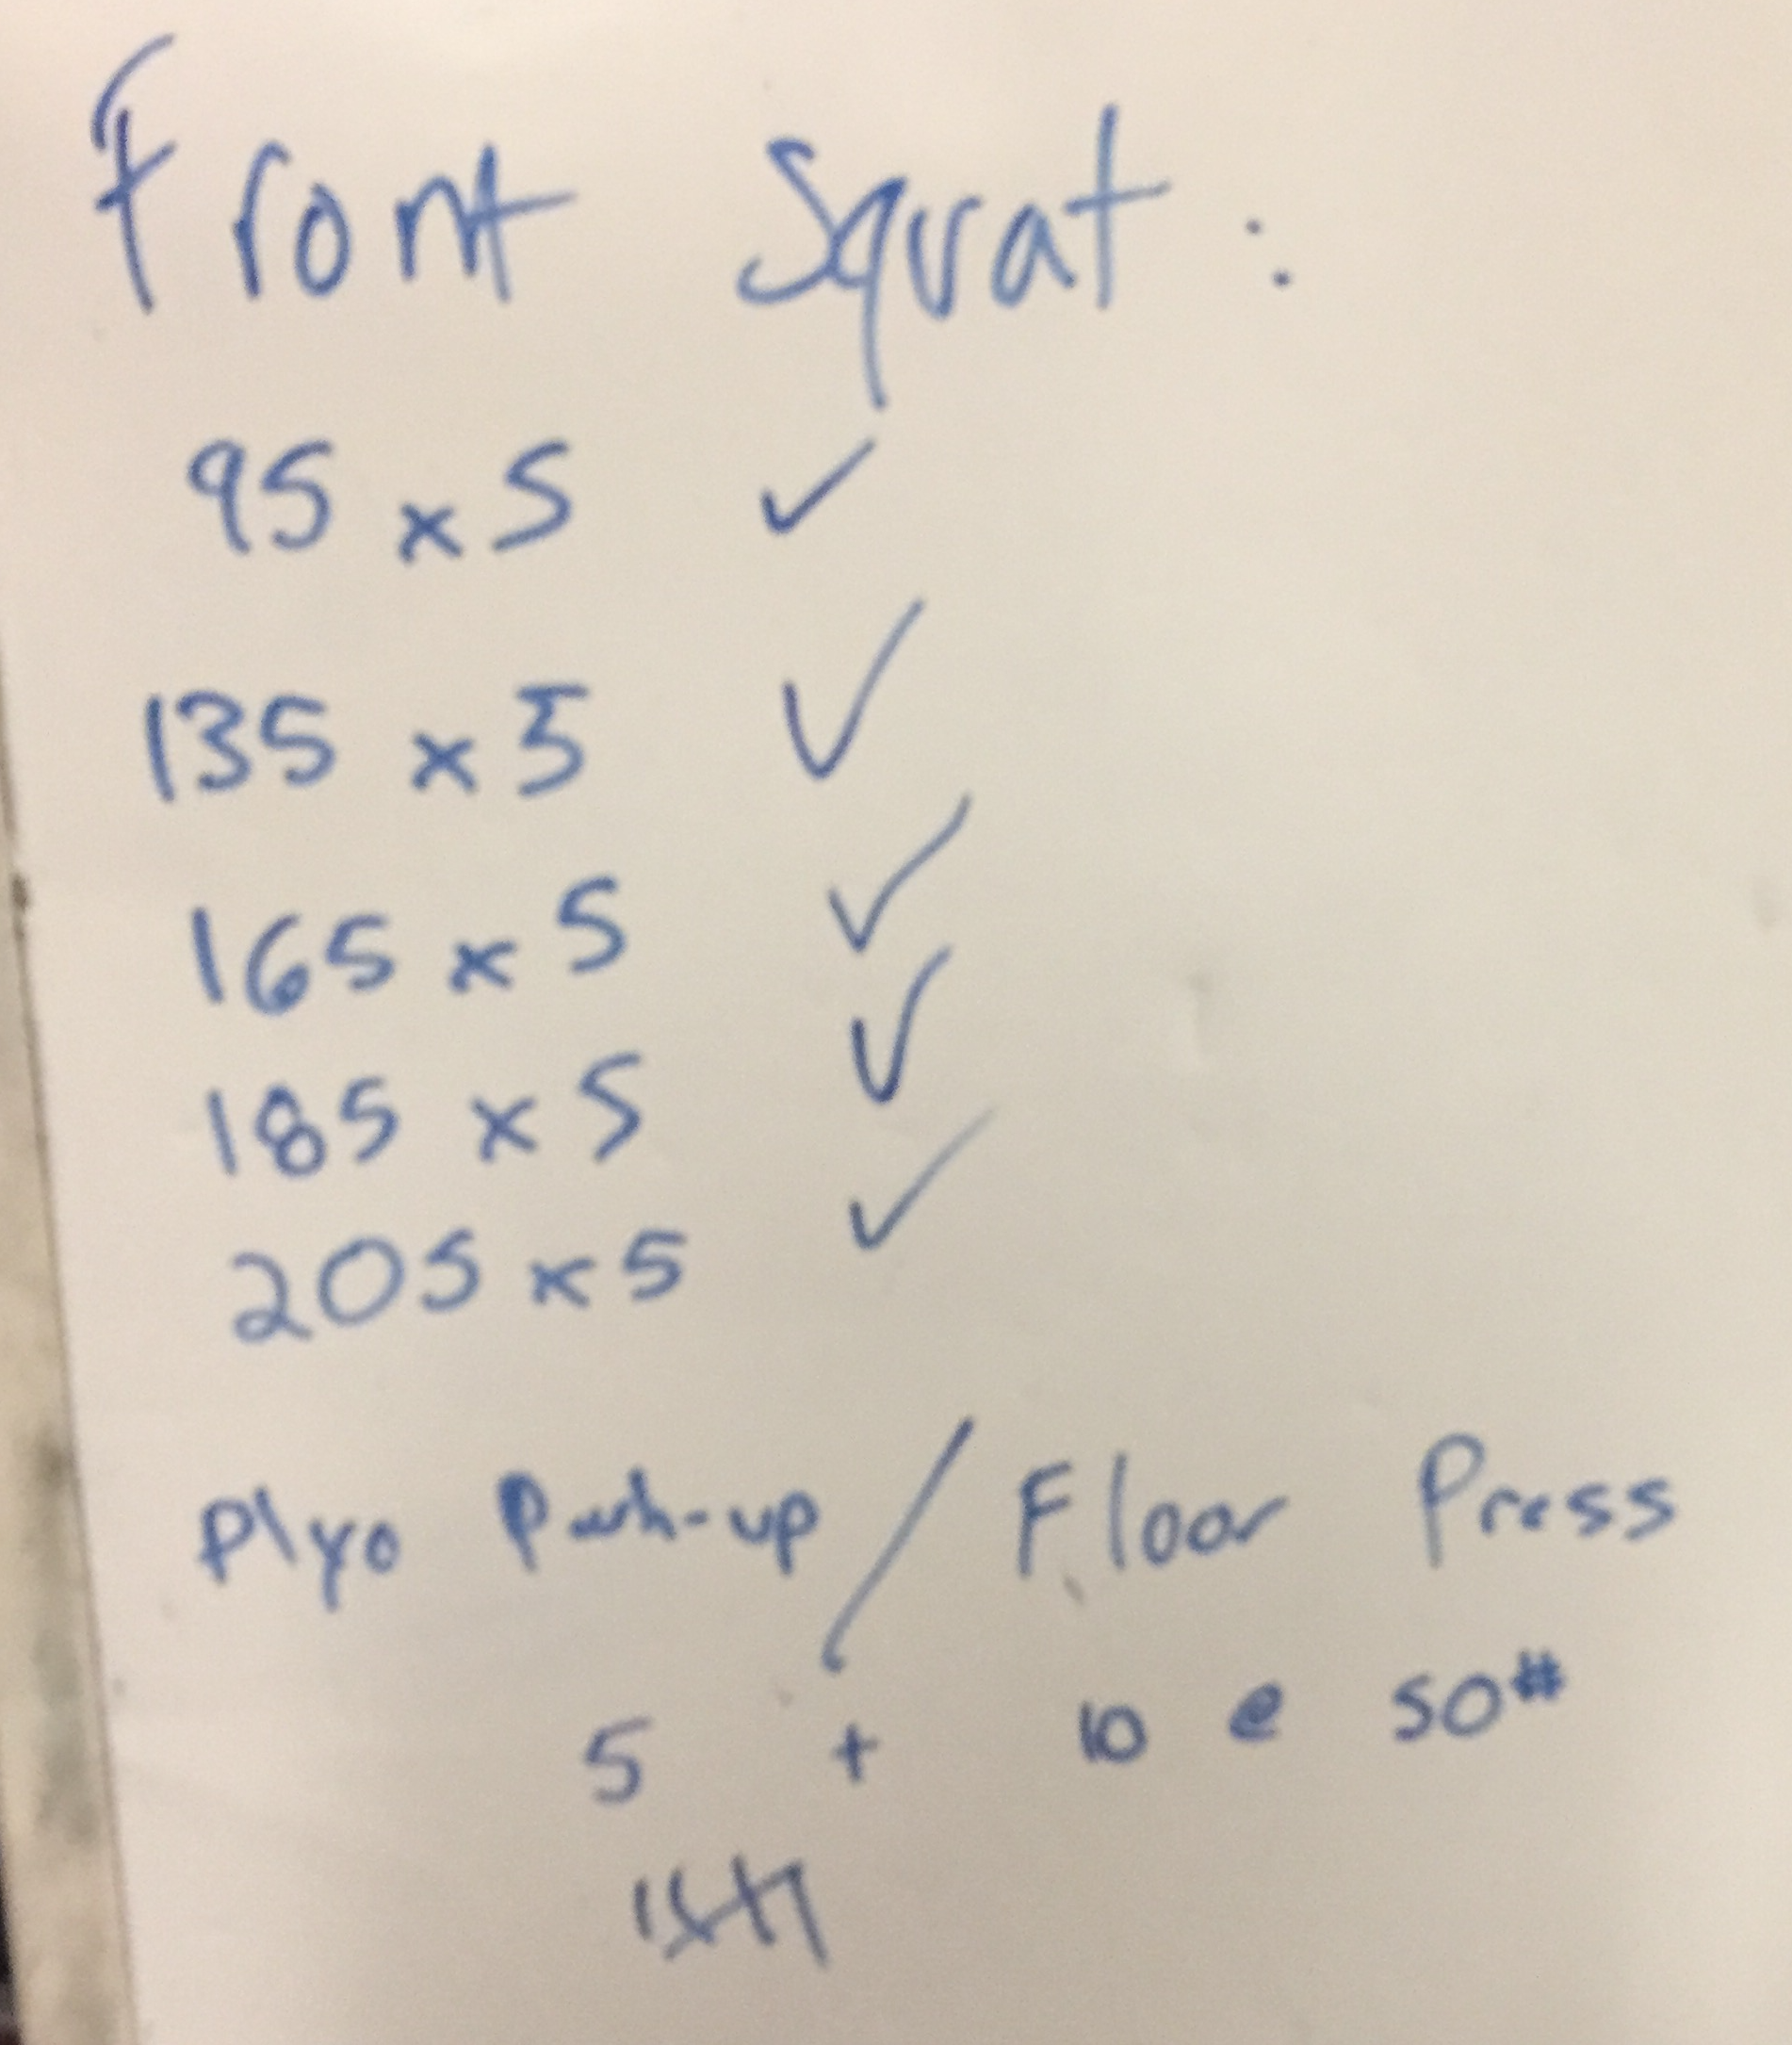 Front Squat:
95 x 5 ✓
135 x 5 ✓
165 x 5 ✓
185 x 5 ✓
205 x 5 ✓
Plyo Push-up / Floor Press
5 + 10 @ 50#